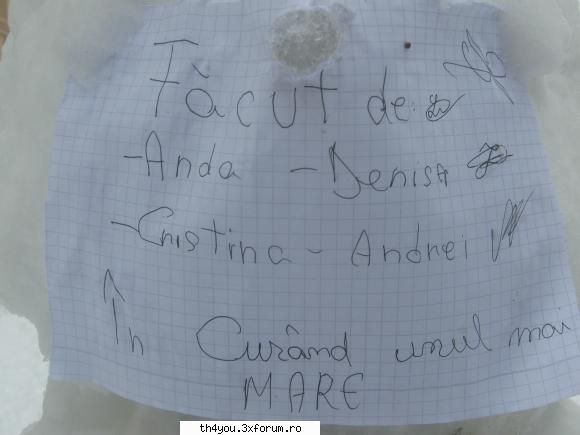 Făcut de:
-Anda -Denisa
-Cristina - Andrei
În Curând unul mai
MARE
th4you.3xforum.ro